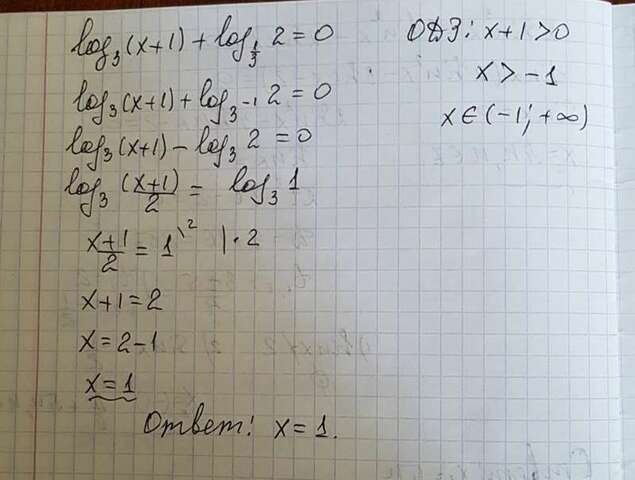 log₃(x+1) + log_{1/3} 2 = 0
log₃(x+1) + log_{3^{-1}} 2 = 0
log₃(x+1) - log₃ 2 = 0
log₃ (x+1)/2 = log₃ 1
x+1/2 = 1^{\2} | · 2
x+1 = 2
x = 2-1
x = 1
Ответ: x = 1.
ОДЗ: x+1 > 0
x > -1
x ∈ (-1; +∞)